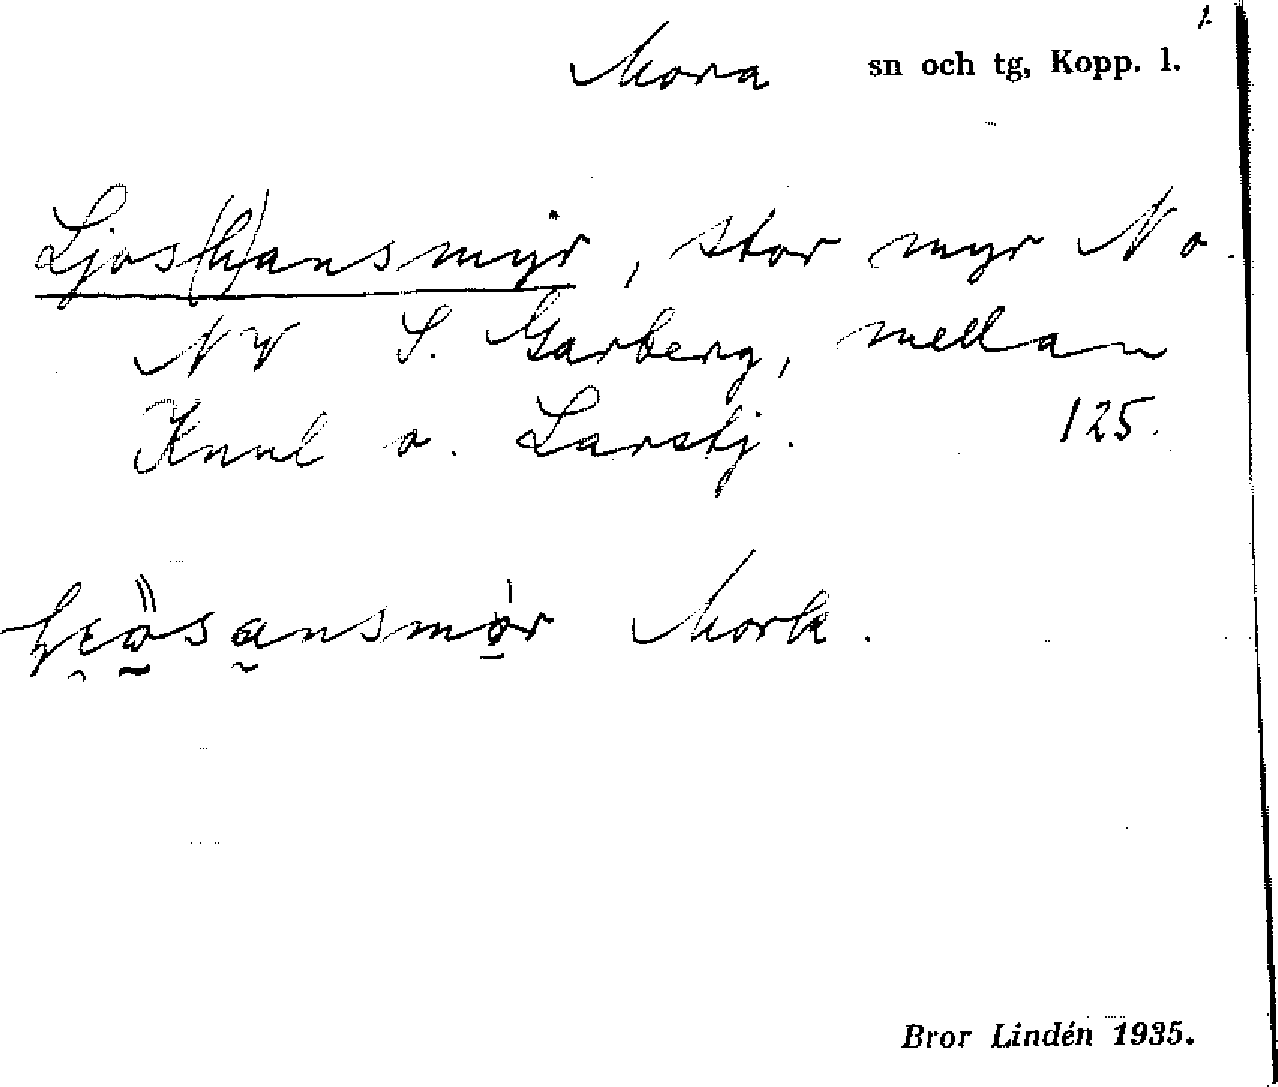 1.
Mora sn och tg, Kopp. l.
Ljos(h)ansmyr, stor myr N o.
NV S. Garberg, mellan
Knul o. Larstj. 125.
Mork.
Bror Lindén 1935.